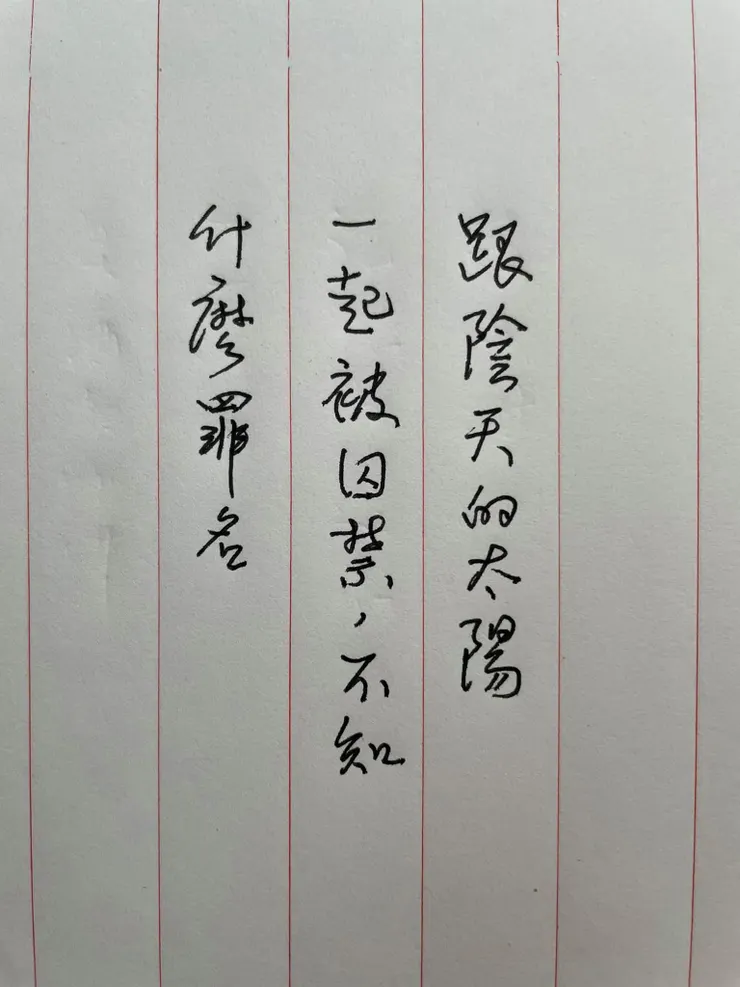 跟陰天的太陽
一起被囚禁，不知
什麼罪名